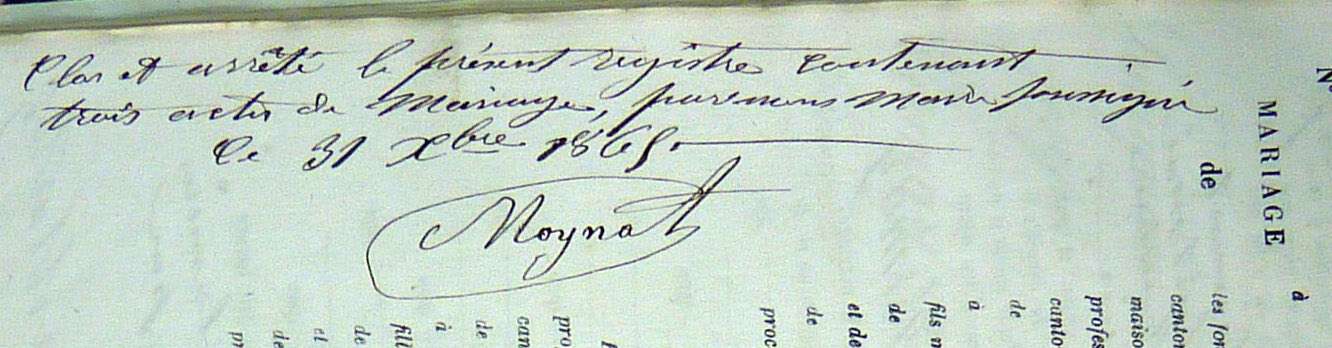 Clos et arrêté le présent registre contenant
trois actes de Mariage, par nous Maire soussigné
le 31 Xbre 1865.
Moynat
MARIAGE
de
à
les for
canton
maiso
profes
canto
de
à
fils n
de
et de
de
proc
pro
can
de
à
fill
de
et
de
pr